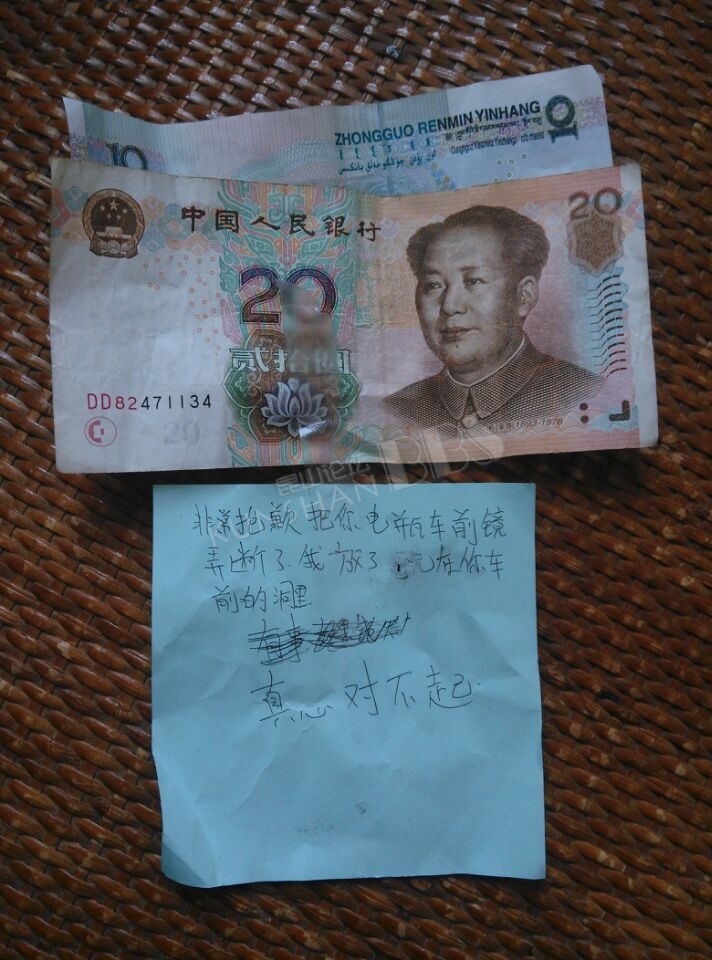 10
ZHONGGUO RENMIN YINHANG
10
中国人民银行
20
20
贰拾圆
DD82471134
1893-1976
20
昆山论坛
KUNSHAN BBS
非常抱歉 把你电瓶车前镜
弄断了.我放了 元在你车
前的洞里
真心对不起.